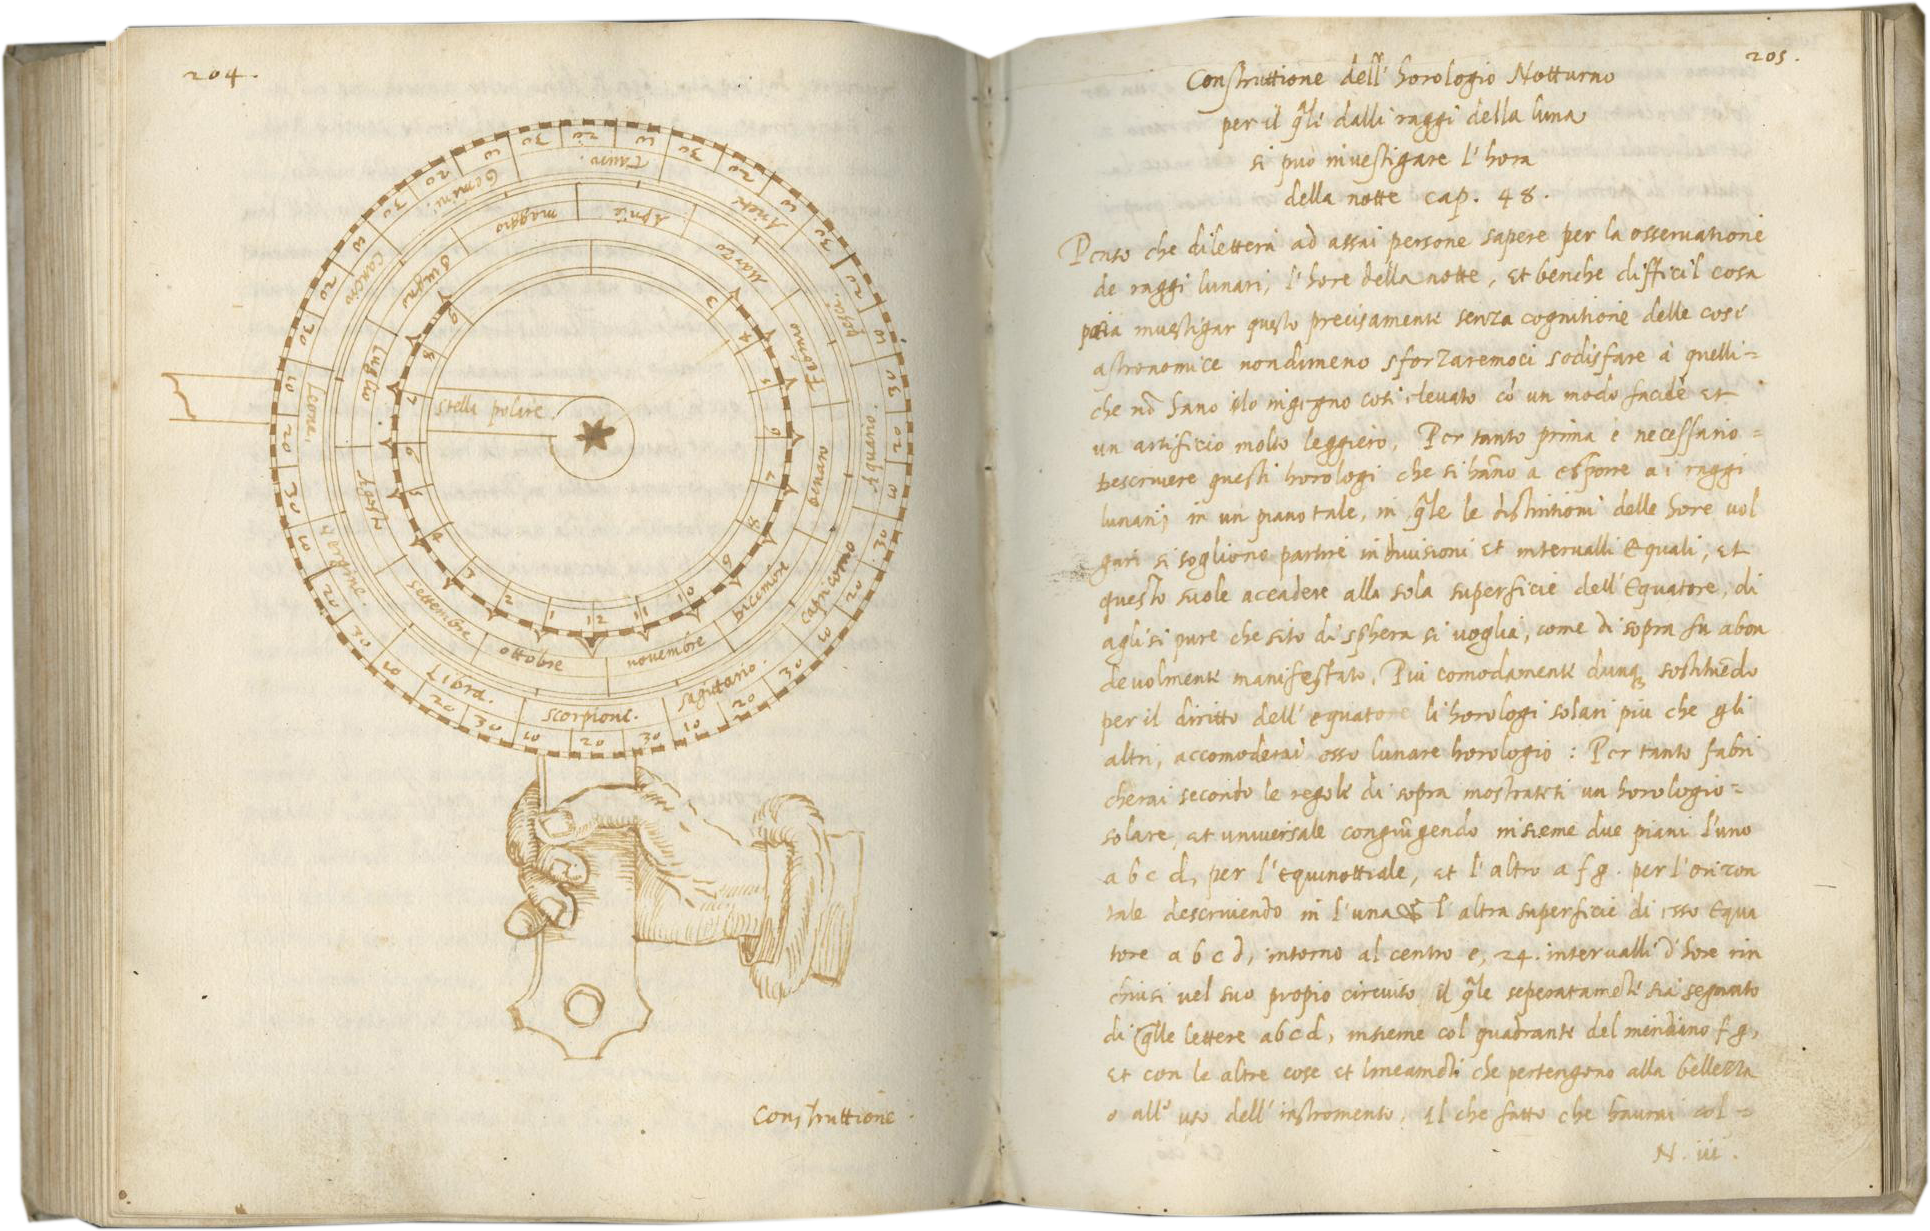 204.
30
20
10
30
20
10
30
20
10
Tauro.
Gemini.
Cancro
Leone.
Libra.
scorpione.
sagittario.
capricorno
Aquario.
Ariete
Aprile
maggio
Giugno
Luglio.
Agosto
settembre
ottobre
novembre
Decembre
Genaro
Febraro
Marzo
stella polare.
3
4
5
6
7
8
9
10
11
12
1
2
3
4
5
6
7
8
9
Construttione.
205.
Construttione dell' horologio Notturno
per il q̃le dalli raggi della luna
si può investigare l'hora
della notte cap. 48.
Penso che diletterà ad assai persone sapere per la osservatione
de raggi lunari, l'hore della notte, et benche difficil cosa
sia investigar questo precisamente senza cognitione delle cose
astronomice nondimeno sforzaremoci sodisfare à quelli=
che nõ hano ilo ingegno così elevato cõ un modo facile et
un artificio molto leggiero. Per tanto prima è necessario=
descrivere questi horologi che si hãno a esporre a i raggi
lunari, in un piano tale, in q̃le le distintioni delle hore vol
gari si sogliono partire in divisioni et intervalli equali, et
questo suole accadere alla sola superficie dell'Equatore, di
agli si pure che sito di sphera si voglia, come di sopra fu abon
devolmente manifestato. Più comodamente dunq; sostituẽdo
per il diritto dell'equatore li horologi solari più che gli
altri, accomoderai esso lunare horologio: Per tanto fabri
cherai secondo le regole di sopra mostrateti un horologio=
solare, et universale congiũgendo insieme due piani l'uno
a b c d, per l'equinottiale, et l'altro a f g. per l'orizon
tale descrivendo in l'una & l'altra superficie di esso Equa
tore a b c d, intorno al centro e, 24. intervalli d'hore rin
chiusi nel suo propio circuito, il q̃le seperatamẽte sia segnato
di q̃lle lettere a b c d, insieme col quadrante del meridiano f g,
et con le altre cose et lineamẽti che pertengono alla bellezza
o all' uso dell'instromento. Il che fatto che haurai col=
N. iii.